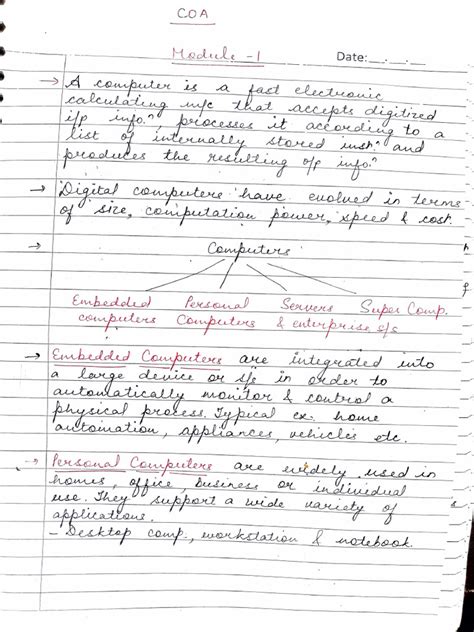 COA
Module - 1
Date:__.__.__
→ A computer is a fast electronic
calculating m/c that accepts digitized
i/p info.ⁿ, processes it according to a
list of internally stored instⁿ. and
produces the resulting o/p info.ⁿ
→ Digital computers have evolved in terms
of size, computation power, speed & cost.
→ Computers
Embedded Personal Servers Super Comp.
computers Computers & enterprise s/s
→ Embedded Computers are integrated into
a large device or s/s in order to
automatically monitor & control a
physical process. Typical ex. home
automation, appliances, vehicles etc.
→ Personal Computers are widely used in
homes, office, business or individual
use. They support a wide variety of
applications.
- Desktop comp., workstation & notebook.